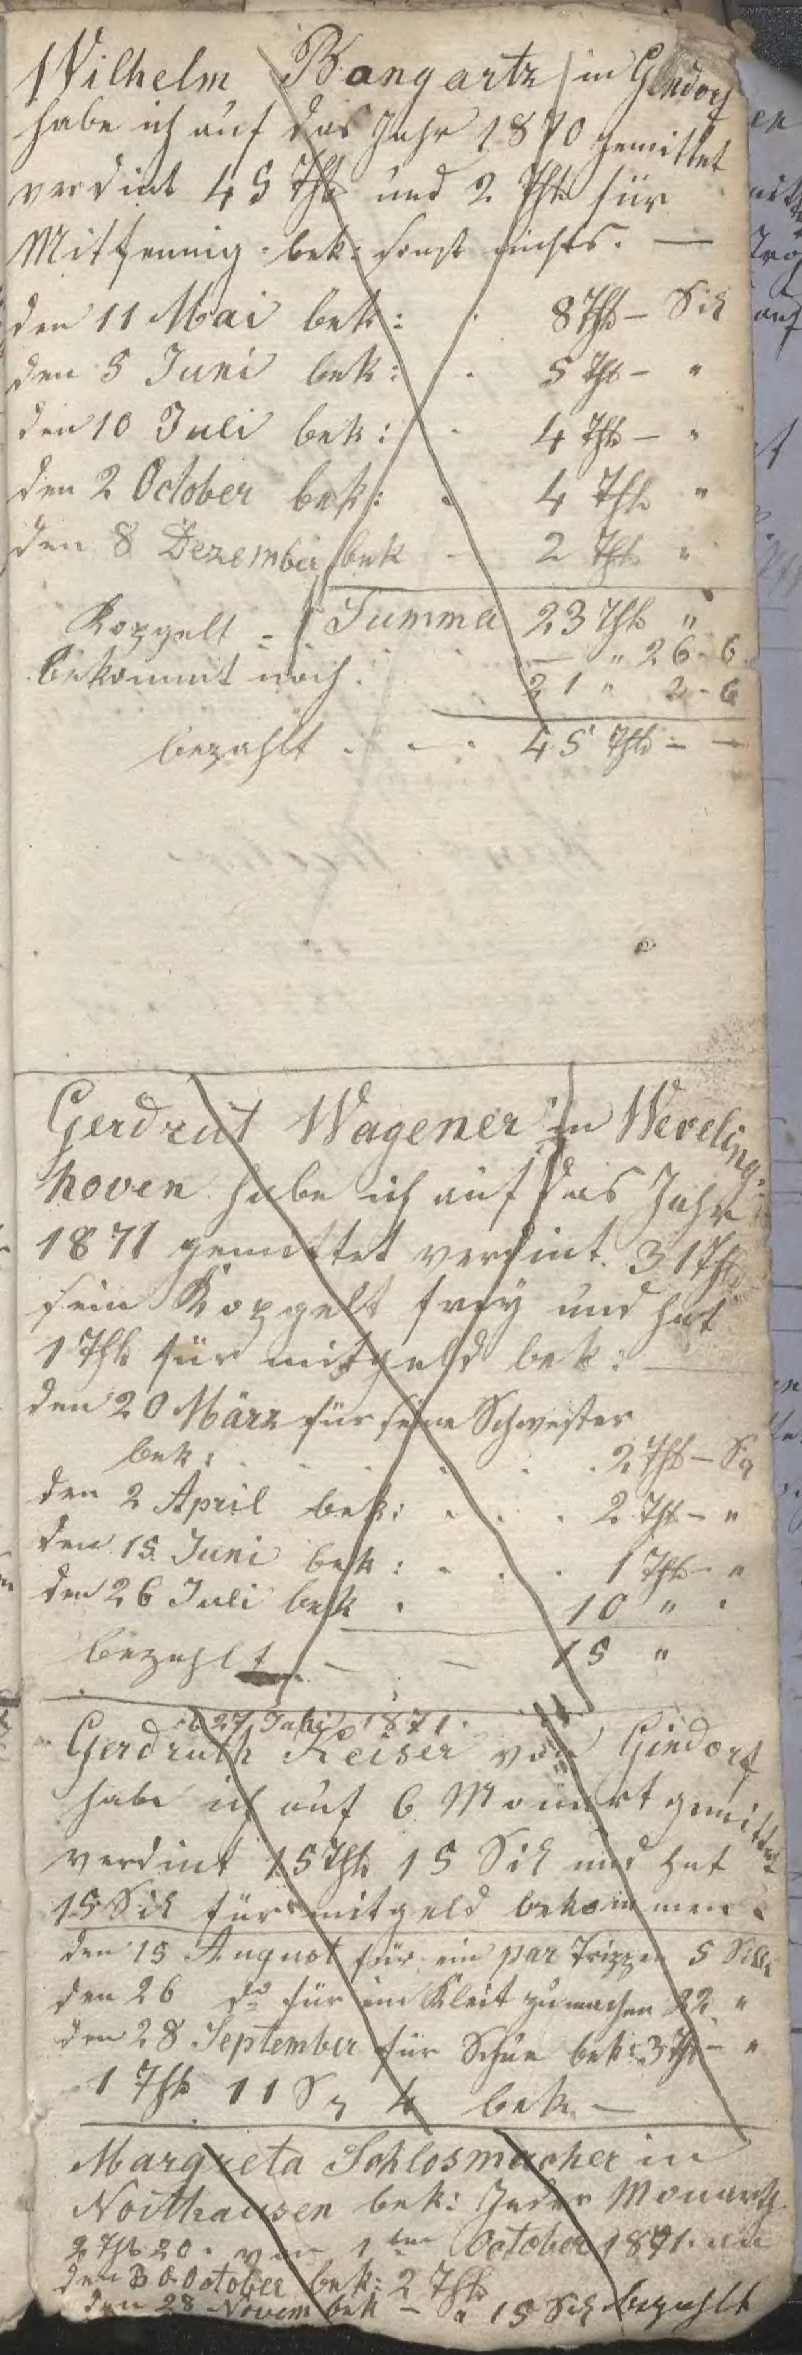 Wilhelm Bangartz in Gindorf
habe ich auf das Jahr 1870 gemittet
verdint 45 Thl und 2 Thl für
Mitfennig bek: sonst nichts. —
den 11 Mai bek: . 8 Thl — Sil
den 5 Juni bek: . 5 Thl — "
den 10 Juli bek: . 4 Thl — "
den 2 October bek: . 4 Thl "
den 8 Dezember bek — 2 Thl "
Summa 23 Thl "
Kopgelt — — " 26 - 6
bekommt noch. 21 " 2 - 6
bezahlt . — . 45 Thl — —
Gerdrut Wagener in Weveling-
hoven habe ich auf das Jahr
1871 gemittet verdint. 31 Thl
sein Kopgelt frey und hat
1 Thl für mitgeld bek: —
den 20 März für seine Schwester
bek: . . . . . 2 Thl — Sg
den 2 April bek: . . . 2 Thl — "
den 15 Juni bek: . . . 1 Thl — "
den 26 Juli bek . 10 " "
bezahlt — — 15 "
27 Juli 1871.
Gerdruth Keiser von Gindorf
habe ich auf 6 Monart gemittet
verdint 15 Thl 15 Sil und hat
15 Sil für mitgeld bekommen.
den 15 August für ein par Trippen 5 Sil
den 26 do für ein Kleit zu machen 22 "
den 28 September für Schue bek: 3 Thl — "
1 Thl 11 Sg 4 bek —
Margreta Schlosmacher in
Noithausen bek: Jeder Monart
2 Thl 20. von 1ten October 1871. an
den 30 October bek: 2 Thl
den 28 Novem bek — " 15 Sil bezahlt